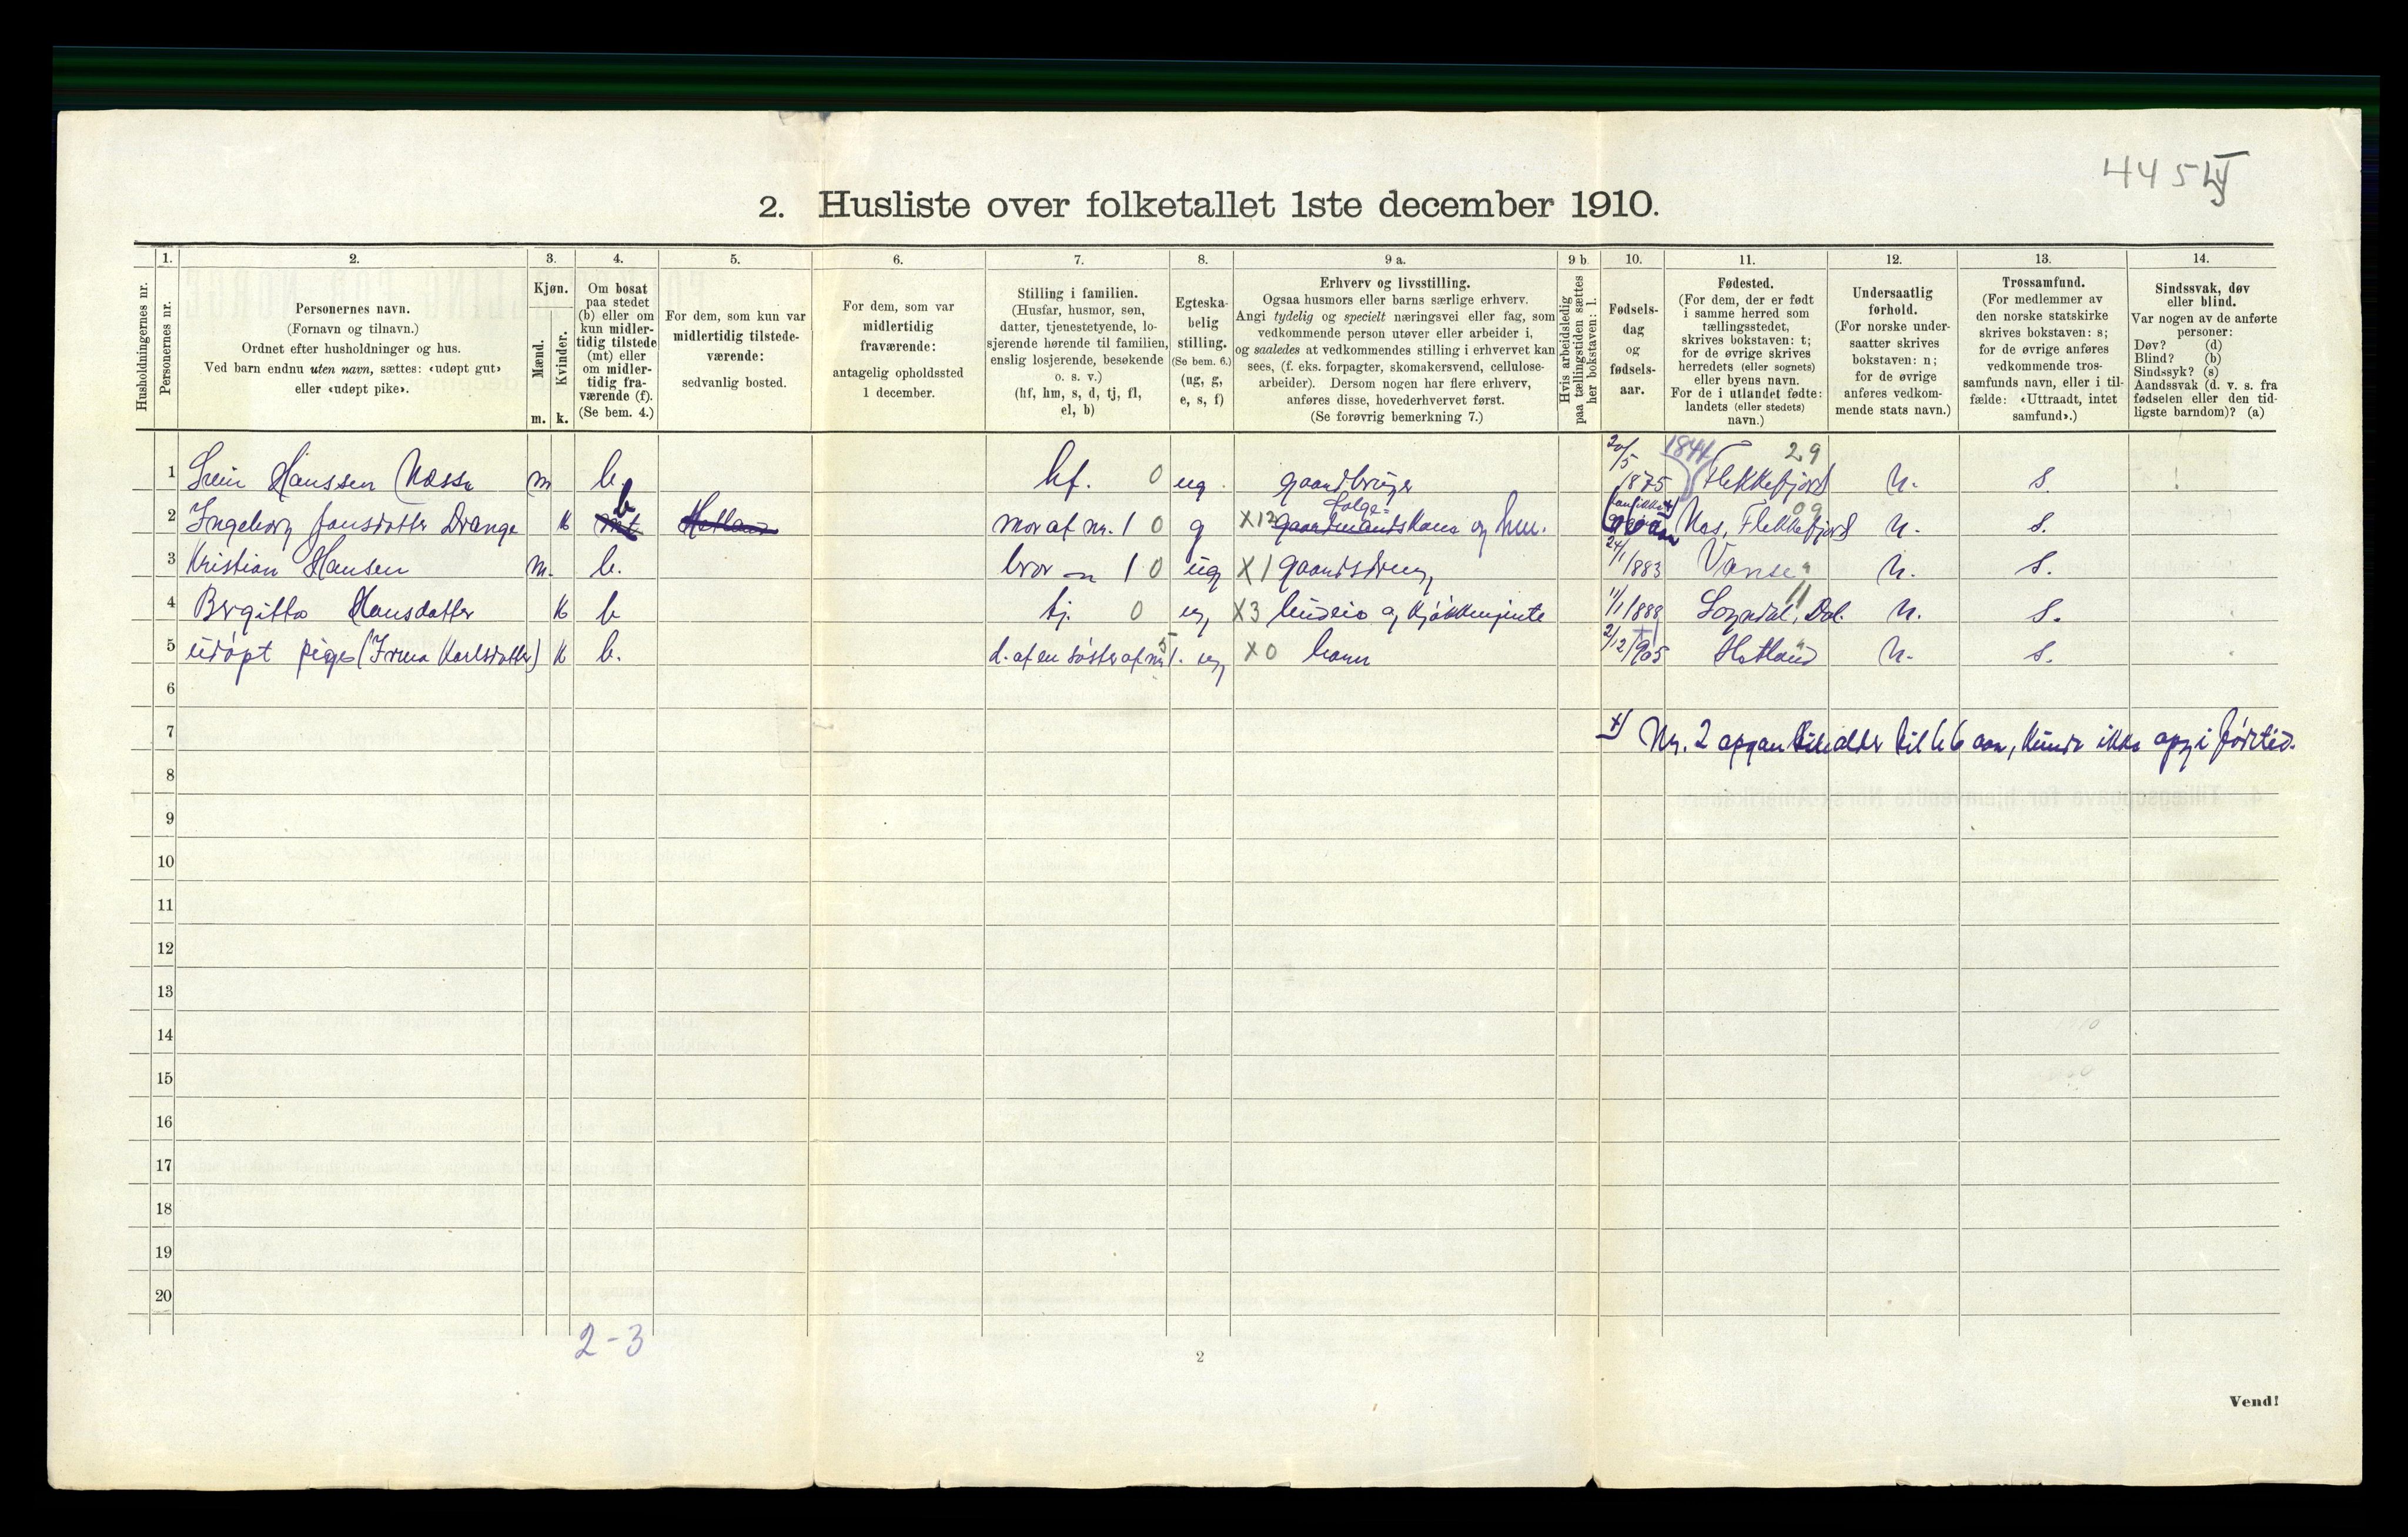 445
2. Husliste over folketallet 1ste december 1910.
Husholdningernes nr.
1. Personernes nr.
2. Personernes navn.
(Fornavn og tilnavn.)
Ordnet efter husholdninger og hus.
Ved barn endnu uten navn, sættes: «udøpt gut»
eller «udøpt pike».
3. Kjøn.
Mænd. m.
Kvinder. k.
4. Om bosat
paa stedet
(b) eller om
kun midler-
tidig tilstede
(mt) eller
om midler-
tidig fra-
værende (f).
(Se bem. 4.)
5. For dem, som kun var
midlertidig tilstede-
værende:
sedvanlig bosted.
6. For dem, som var
midlertidig
fraværende:
antagelig opholdssted
1 december.
7. Stilling i familien.
(Husfar, husmor, søn,
datter, tjenestetyende, lo-
sjerende hørende til familien,
enslig losjerende, besøkende
o. s. v.)
(hf, hm, s, d, tj, fl,
el, b)
8. Egteska-
belig
stilling.
(Se bem. 6.)
(ug, g,
e, s, f)
9 a. Erhverv og livsstilling.
Ogsaa husmors eller barns særlige erhverv.
Angi tydelig og specielt næringsvei eller fag, som
vedkommende person utøver eller arbeider i,
og saaledes at vedkommendes stilling i erhvervet kan
sees, (f. eks. forpagter, skomakersvend, cellulose-
arbeider). Dersom nogen har flere erhverv,
anføres disse, hovederhvervet først.
(Se forøvrig bemerkning 7.)
9 b. Hvis arbeidsledig
paa tællingstiden sættes
her bokstaven: l.
10. Fødsels-
dag
og
fødsels-
aar.
11. Fødested.
(For dem, der er født
i samme herred som
tællingsstedet,
skrives bokstaven: t;
for de øvrige skrives
herredets (eller sognets)
eller byens navn.
For de i utlandet fødte:
landets (eller stedets)
navn.)
12. Undersaatlig
forhold.
(For norske under-
saatter skrives
bokstaven: n;
for de øvrige
anføres vedkom-
mende stats navn.)
13. Trossamfund.
(For medlemmer av
den norske statskirke
skrives bokstaven: s;
for de øvrige anføres
vedkommende tros-
samfunds navn, eller i til-
fælde: «Uttraadt, intet
samfund».)
14. Sindssvak, døv
eller blind.
Var nogen av de anførte
personer:
Døv? (d)
Blind? (b)
Sindssyk? (s)
Aandssvak (d. v. s. fra
fødselen eller den tid-
ligste barndom)? (a)
1 Hanssen m b. hf. 0 ug. gaardbruger 20/5 1875 1844 Flekkefjord 29 n. s.
2 Ingeborg Jansdatter Drange k mt b Hetland mor af nr. 1 0 g X12 gaardmandskone og hm. Nes, Flekkefjord 09 n. s.
3 Kristian Hansen m. b. bror 1 0 ug X1 gaardsdreng 24/1 1883 Vanse n. s.
4 Bergitta Hansdatter k b tj. 0 ug X3 budeie og kjøkkenjente 11/1 1888 Sogndal, Dal. 11 n. s.
5 udøpt pige (Irma Karlsdatter) k b. d. af en søster af nr. 1. 5 ug X0 barn 2/12 1905 Hetland n. s.
6
7 x) Nr. 2 opgav alder til 66 aar, kunde ikke opgi fødtid.
8
9
10
11
12
13
14
15
16
17
18
19
20
2-3
2
Vend!